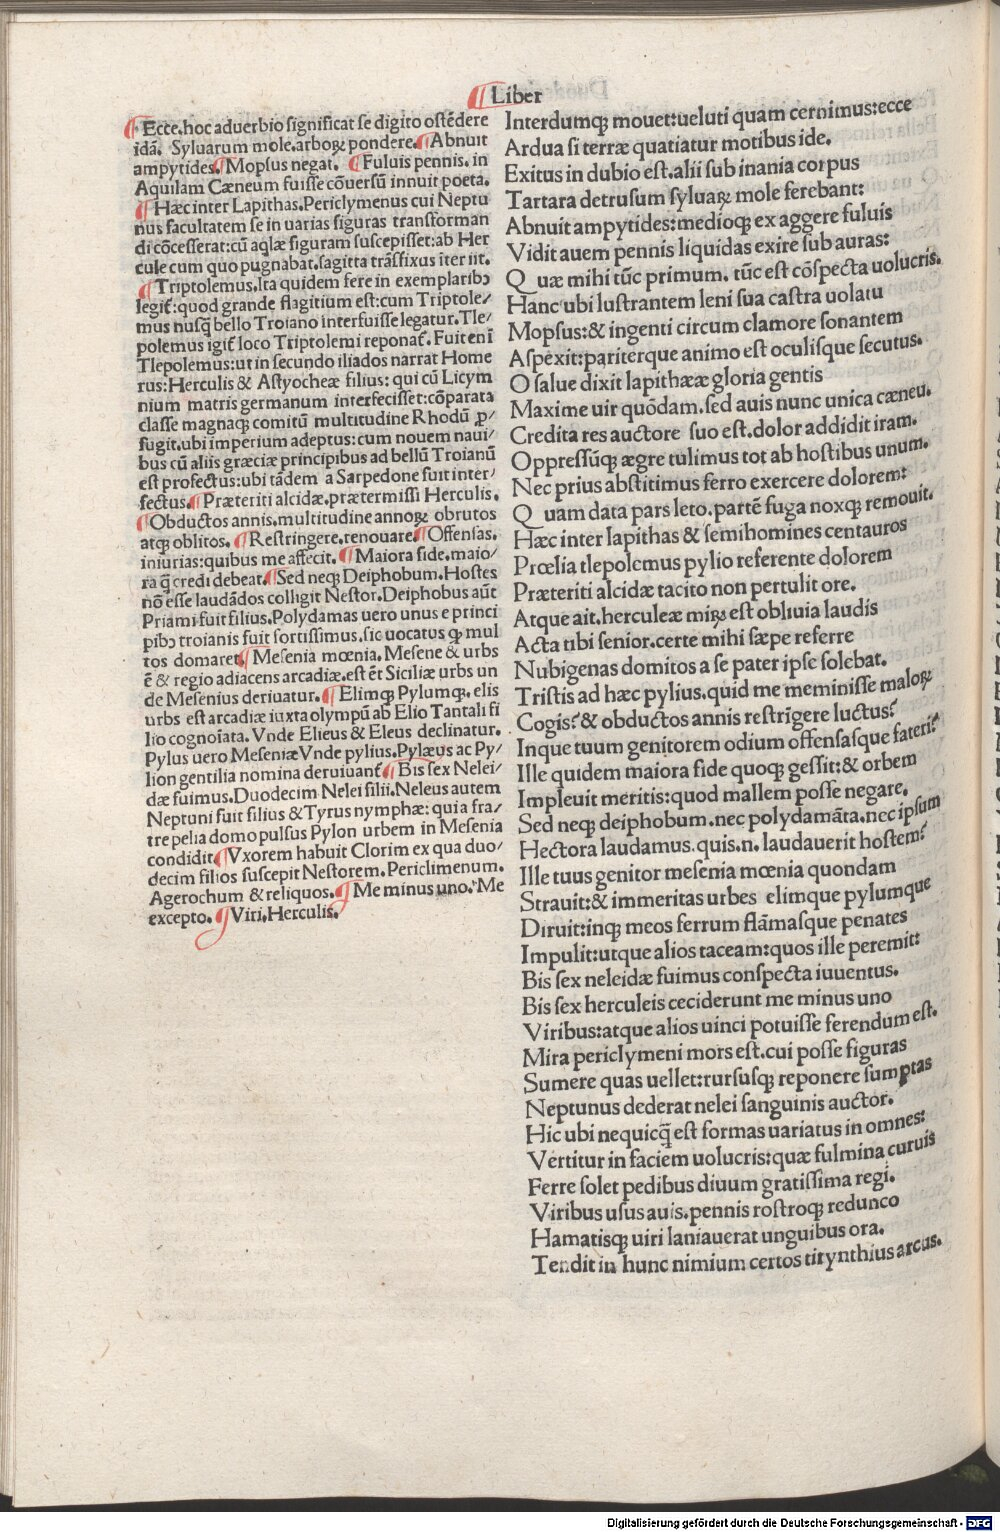 ¶Liber
¶Ecce.hoc aduerbio significat se digito ostēdere
idā. Syluarum mole.arboꝝ pondere.¶Abnuit
ampytides.¶Mopsus negat. ¶Fuluis pennis.in
Aquilam Cæneum fuisse cōuersū innuit poeta.
¶Hæc inter Lapithas.Periclymenus cui Neptu
nus facultatem se in uarias figuras transforman
di cōcesserat:cū aqlæ figuram suscepisset:ab Her
cule cum quo pugnabat.sagitta trāsfixus īter iit.
¶Triptolemus.Ita quidem fere in exemplaribꝫ
legit᷑:quod grande flagitium est:cum Triptole/
mus nusq̄ bello Troiano interfuisse legatur.Tle/
polemus igit᷑ loco Triptolemi reponat᷑.Fuit enī
Tlepolemus:ut in secundo iliados narrat Home
rus:Herculis & Astyocheæ filius: qui cū Licym
nium matris germanum interfecisset:cōparata
classe magnaqꝫ comitū multitudine Rhodū ꝓ/
fugit.ubi imperium adeptus:cum nouem naui/
bus cū aliis græciæ principibus ad bellū Troianū
est profectus:ubi tādem a Sarpedone fuit inter/
fectus.¶Præteriti alcidæ.prætermissi Herculis.
¶Obductos annis.multitudine annoꝝ obrutos
atqꝫ oblitos.¶Restringere.renouare.¶Offensas.
iniurias:quibus me affecit.¶Maiora fide.maio/
ra q̄ credi debeat.¶Sed neqꝫ Deiphobum.Hostes
nō esse laudādos colligit Nestor.Deiphobus aūt
Priami fuit filius.Polydamas uero unus e princi
pibꝫ troianis fuit fortissimus.sic uocatus qꝫ mul
tos domaret.¶Mesenia mœnia.Mesene & urbs
ē & regio adiacens arcadiæ.est ēt Siciliæ urbs un
de Mesenius deriuatur.¶Elimqꝫ Pylumqꝫ.elis
urbs est arcadiæ iuxta olympū ab Elio Tantali fi
lio cognoīata.Vnde Elieus & Eleus declinatur.
Pylus uero Meseniæ Vnde pylius.Pylæus ac Py/
lion gentilia nomina deruiuant᷑¶Bis sex Nelei/
dæ fuimus.Duodecim Nelei filii.Neleus autem
Neptuni fuit filius & Tyrus nymphæ: qui a fra/
tre pelia domo pulsus Pylon urbem in Mesenia
condidit.¶Vxorem habuit Clorim ex qua duo/
decim filios suscepit Nestorem.Periclimenum.
Agerochum & reliquos.¶Me minus uno.Me
excepto.¶Viri.Herculis.
Interdumqꝫ mouet:ueluti quam cernimus:ecce
Ardua si terræ quatiatur motibus ide.
Exitus in dubio est.alii sub inania corpus
Tartara detrusum syluaꝝ mole ferebant:
Abnuit ampytides:medioqꝫ ex aggere fuluis
Vidit auem pennis liquidas exire sub auras:
Q uæ mihi tūc primum. tūc est cōspecta uolucris.
Hanc ubi lustrantem leni sua castra uolatu
Mopsus:& ingenti circum clamore sonantem
Aspexit:pariterque animo est oculisque secutus.
O salue dixit lapithææ gloria gentis
Maxime uir quōdam.sed auis nunc unica cæneu.
Credita res auctore suo est.dolor addidit iram.
Oppressūqꝫ ægre tulimus tot ab hostibus unum.
Nec prius abstitimus ferro exercere dolorem:
Q uam data pars leto.partē fuga noxqꝫ remouit.
Hæc inter lapithas & semihomines centauros
Prœlia tlepolemus pylio referente dolorem
Præteriti alcidæ tacito non pertulit ore.
Atque ait.herculeæ miꝝ est obliuia laudis
Acta tibi senior.certe mihi sæpe referre
Nubigenas domitos a se pater ipse solebat.
Tristis ad hæc pylius.quid me meminisse maloꝝ
Cogis?& obductos annis restrīgere luctus?
Inque tuum genitorem odium offensasque fateri?
Ille quidem maiora fide quoqꝫ gessit:& orbem
Impleuit meritis:quod mallem posse negare.
Sed neqꝫ deiphobum.nec polydamāta.nec ipsum
Hectora laudamus.quis.n.laudauerit hostem?
Ille tuus genitor mesenia mœnia quondam
Strauit:& immeritas urbes elimque pylumque
Diruit:inqꝫ meos ferrum flāmasque penates
Impulit:utque alios taceam:quos ille peremit:
Bis sex neleidæ fuimus conspecta iuuentus.
Bis sex herculeis ceciderunt me minus uno
Viribus:atque alios uinci potuisse ferendum est.
Mira periclymeni mors est.cui posse figuras
Sumere quas uellet:rursusqꝫ reponere sumptas
Neptunus dederat nelei sanguinis auctor.
Hic ubi nequicq̄ est formas uariatus in omnes:
Vertitur in faciem uolucris:quæ fulmina curuis
Ferre solet pedibus diuum gratissima regi.
Viribus usus auis.pennis rostroqꝫ redunco
Hamatisqꝫ uiri laniauerat unguibus ora.
Tendit in hunc nimium certos tirynthius arcus.
Digitalisierung gefördert durch die Deutsche Forschungsgemeinschaft - DFG